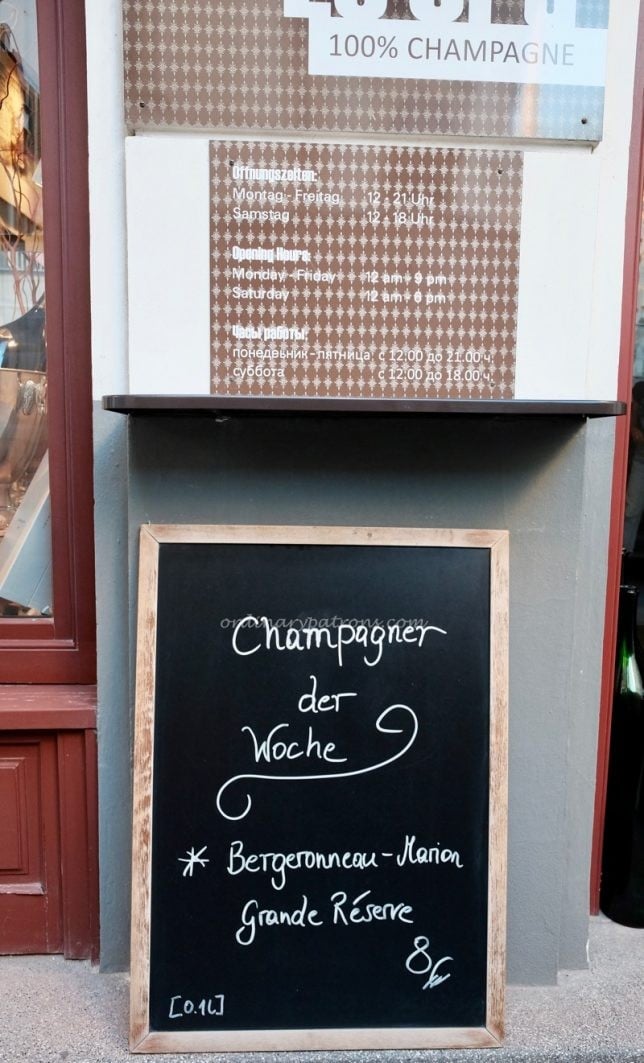 100% CHAMPAGNE
Öffnungszeiten:
Montag - Freitag 12 - 21 Uhr
Samstag 12 - 18 Uhr
Opening Hours:
Monday - Friday 12 am - 9 pm
Saturday 12 am - 6 pm
Часы работы:
понедвьник - пятница с 12.00 до 21.00 ч.
суббота с 12.00 до 18.00 ч.
ordinarypatrons.com
Champagner
der
Woche
* Bergeronneau - Marion
Grande Réserve
8€
[0.1l]